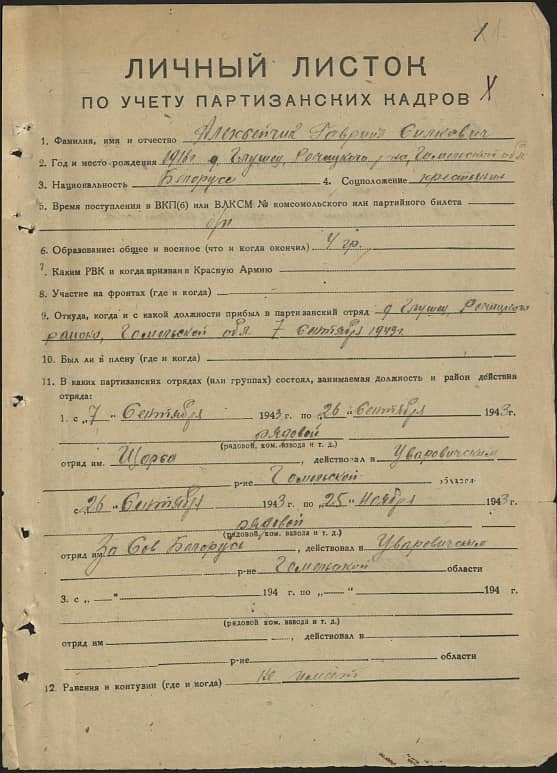 1
ЛИЧНЫЙ ЛИСТОК
ПО УЧЕТУ ПАРТИЗАНСКИХ КАДРОВ
1. Фамилия, имя и отчество Гавриил
2. Год и место рождения 1916 г. д. Глушец, Речицкого р-на, Гомельской обл.
3. Национальность Белорус 4. Соцположение крестьянин
5. Время поступления в ВКП(б) или ВЛКСМ № комсомольского или партийного билета
б/п
6. Образование: общее и военное (что и когда окончил) 4 гр.
7. Каким РВК и когда призван в Красную Армию
8. Участие на фронтах (где и когда)
9. Откуда, когда и с какой должности прибыл в партизанский отряд д. Глушец, Речицкого
района, Гомельской обл. 7 Сентября 1943 г
10. Был ли в плену (где и когда)
11. В каких партизанских отрядах (или группах) состоял, занимаемая должность и район действия
отряда:
1. с „7 “ Сентября 1943 г. по „26 “ Сентября 1943 г.
рядовой
(рядовой, ком. взвода и т. д.)
отряд им. Щорса , действовал в Уваровичским
р-не Гомельской области
с „26 “ Сентября 1943 г. по „25 “ Ноября 1943 г.
рядовой
(рядовой, ком. взвода и т. д.)
отряд им За Сов Белорусь , действовал в Уваровичским
р-не Гомельской области
3. с „ — “ 194 г. по „ — “ 194 г.
(рядовой, ком. взвода и т. д.)
отряд им , действовал в
р-не области
12. Ранения и контузии (где и когда) не имеет